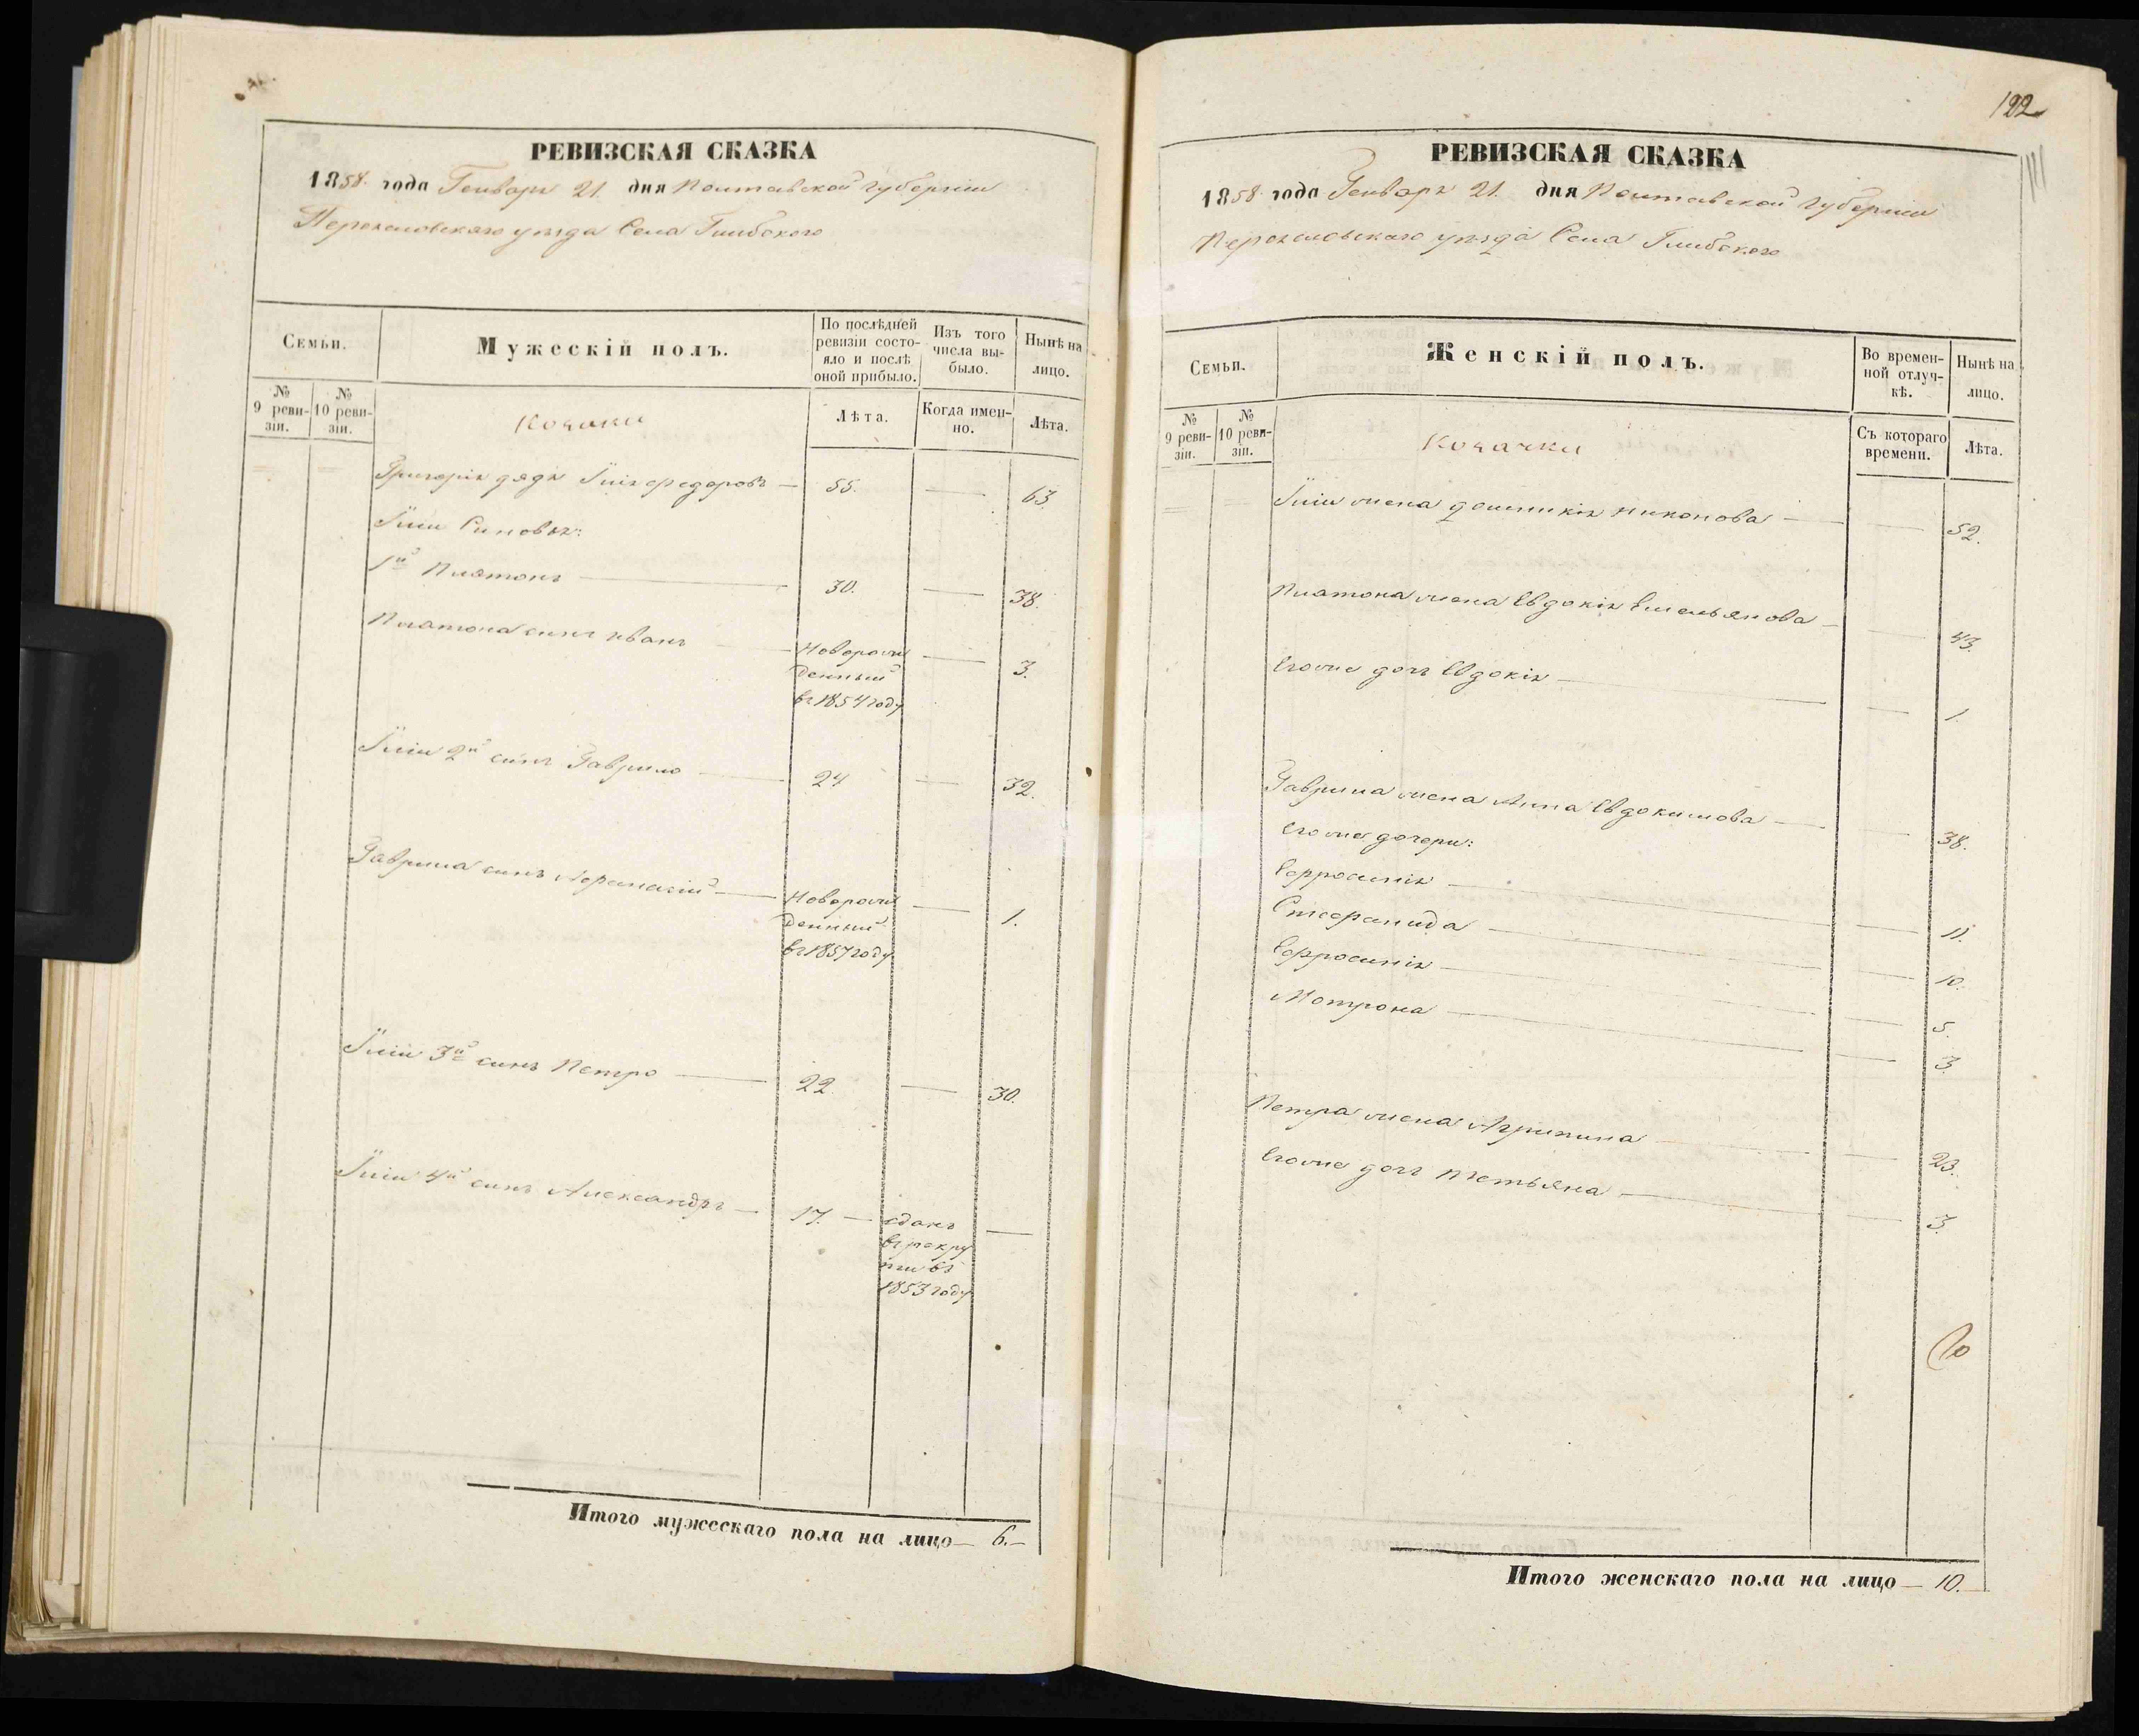 РЕВИЗСКАЯ СКАЗКА
1858 года Генваря 21. дня Полтавской губерніи
Переяславскаго уѣзда Села Глибокого
Семьи.
Мужескій полъ.
По послѣдней ревизіи состояло и послѣ оной прибыло.
Изъ того числа выбыло.
Нынѣ на лицо.
№ 9 ревизіи.
№ 10 ревизіи.
Козаки
Лѣта.
Когда именно.
Лѣта.
Григорія дядя Илія Федоровъ — 55. — 63.
Иліи Синовья:
1й Платонъ — 30. — 38.
Платона синъ Иванъ — Новорожденный въ 1854 году — 3.
Иліи 2й синъ Гаврило — 24 — 32.
Гаврила синъ Афанасій — Новорожденный въ 1857 году — 1.
Иліи 3й синъ Петро — 22. — 30.
Иліи 4й синъ Александръ — 17. — сданъ въ рекруты въ 1853 году —
Итого мужескаго пола на лицо — 6. —
122
РЕВИЗСКАЯ СКАЗКА
1858 года Генваря 21. дня Полтавской губерніи
Переяславскаго уѣзда Села Глибокого
Семьи.
Женскій полъ.
Во временной отлучкѣ.
Нынѣ на лицо.
№ 9 ревизіи.
№ 10 ревизіи.
Козачки
Съ котораго времени.
Лѣта.
Иліи жена Домникія Никонова — — 52.
Платона жена Евдокія Емельянова — — 43.
Егоже дочь Евдокія — — 1.
Гаврила жена Анна Евдокимова — — 38.
Егоже дочери:
Ефросинія — — 11.
Стефанида — — 10.
Ефросинія — — 5.
Мотрона — — 3.
Петра жена Агрипина — — 23.
Егоже дочь Татьяна — — 3.
10
Итого женскаго пола на лицо — 10. —